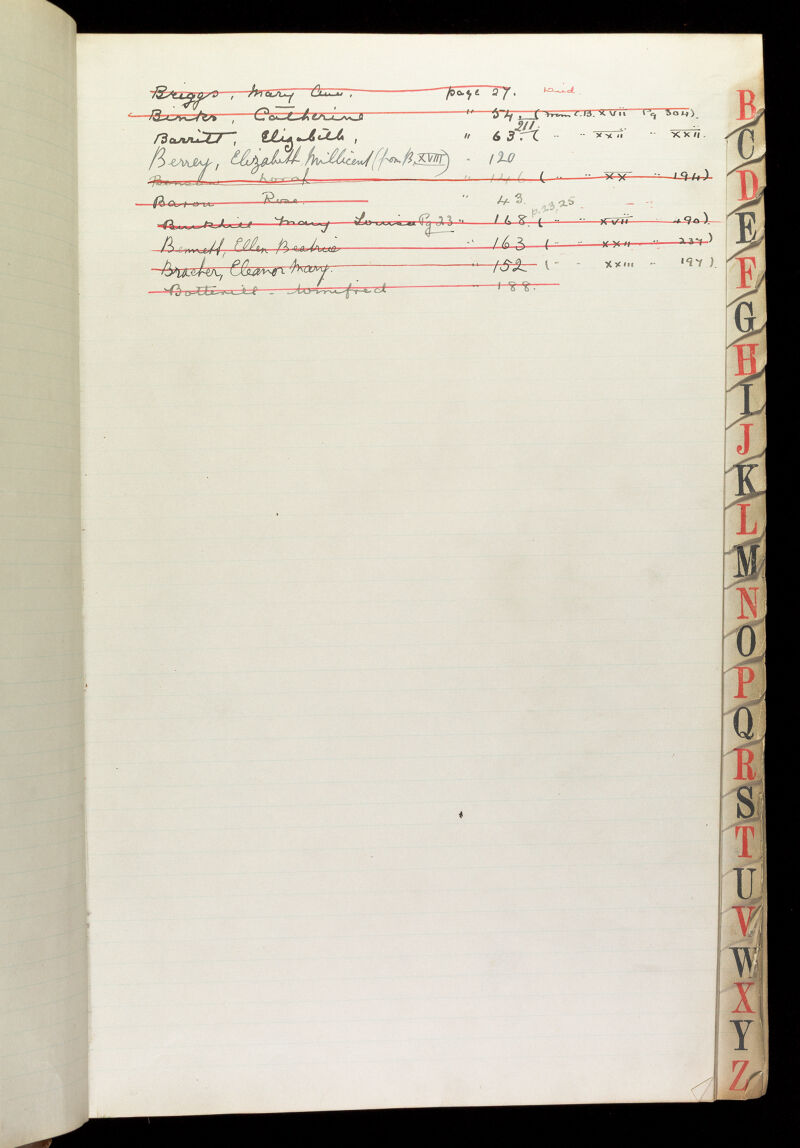 Briggs, Mary Ann. page 27. Died.
Binks, Catherine " 54. (from C.B. XVII Pg 304).
211
Barritt, Elizabeth, " 63. ( " " XXII " XXII.
Berrey, Elizabeth Millicent (from B. XVIII) " 120
" 146 ( " " XX " 194)
Baron Rose " 43.
p. 23, 25
Mary Louisa Pg 23 " 168. ( " " XVII 490)
Bennett, Ellen Beatrice " 163 ( " " XXII " 237)
Bracher, Eleanor Mary. " 152 ( " " XXIII " 197).
Botterill - Winifred " 188.
B
C
D
E
F
G
H
I
J
K
L
M
N
O
P
Q
R
S
T
U
V
W
X
Y
Z